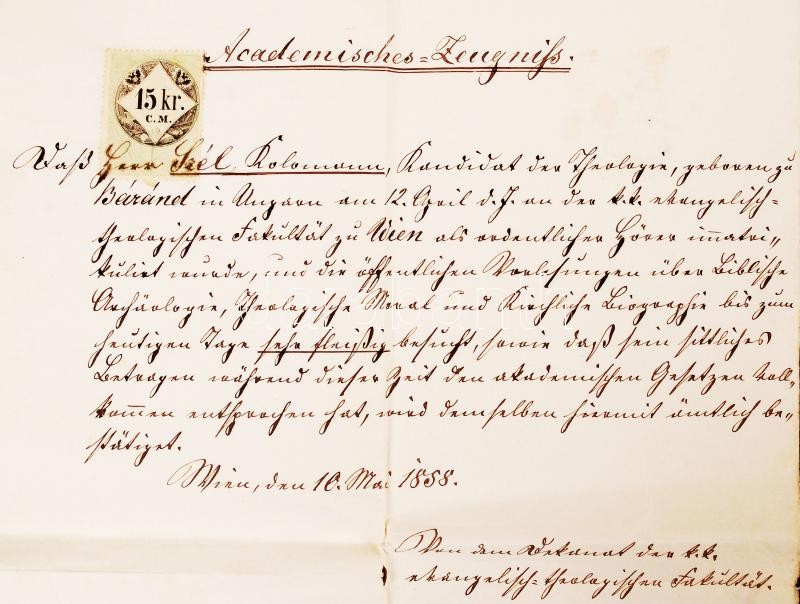 Academisches=Zeugniß.
15 kr.
C.M.
Daß Herr Szél Kolomann, Kandidat der Theologie, geboren zu
Báránd in Ungarn am 12. April d. J. an der k. k. evangelisch=
theologischen Fakultät zu Wien als ordentlicher Hörer immatri„
kulirt wurde, und die öffentlichen Vorlesungen über Biblische
Archäologie, Theologische Moral und Kirchliche Biographie bis zum
heutigen Tage sehr fleißig besucht, sowie daß sein sittliches
Betragen während dieser Zeit den akademischen Gesetzen voll„
kommen entsprochen hat, wird demselben hiermit ämtlich be„
stätiget.
Wien, den 10. Mai 1858.
Von dem Dekanat der k. k.
evangelisch=theologischen Fakultät.